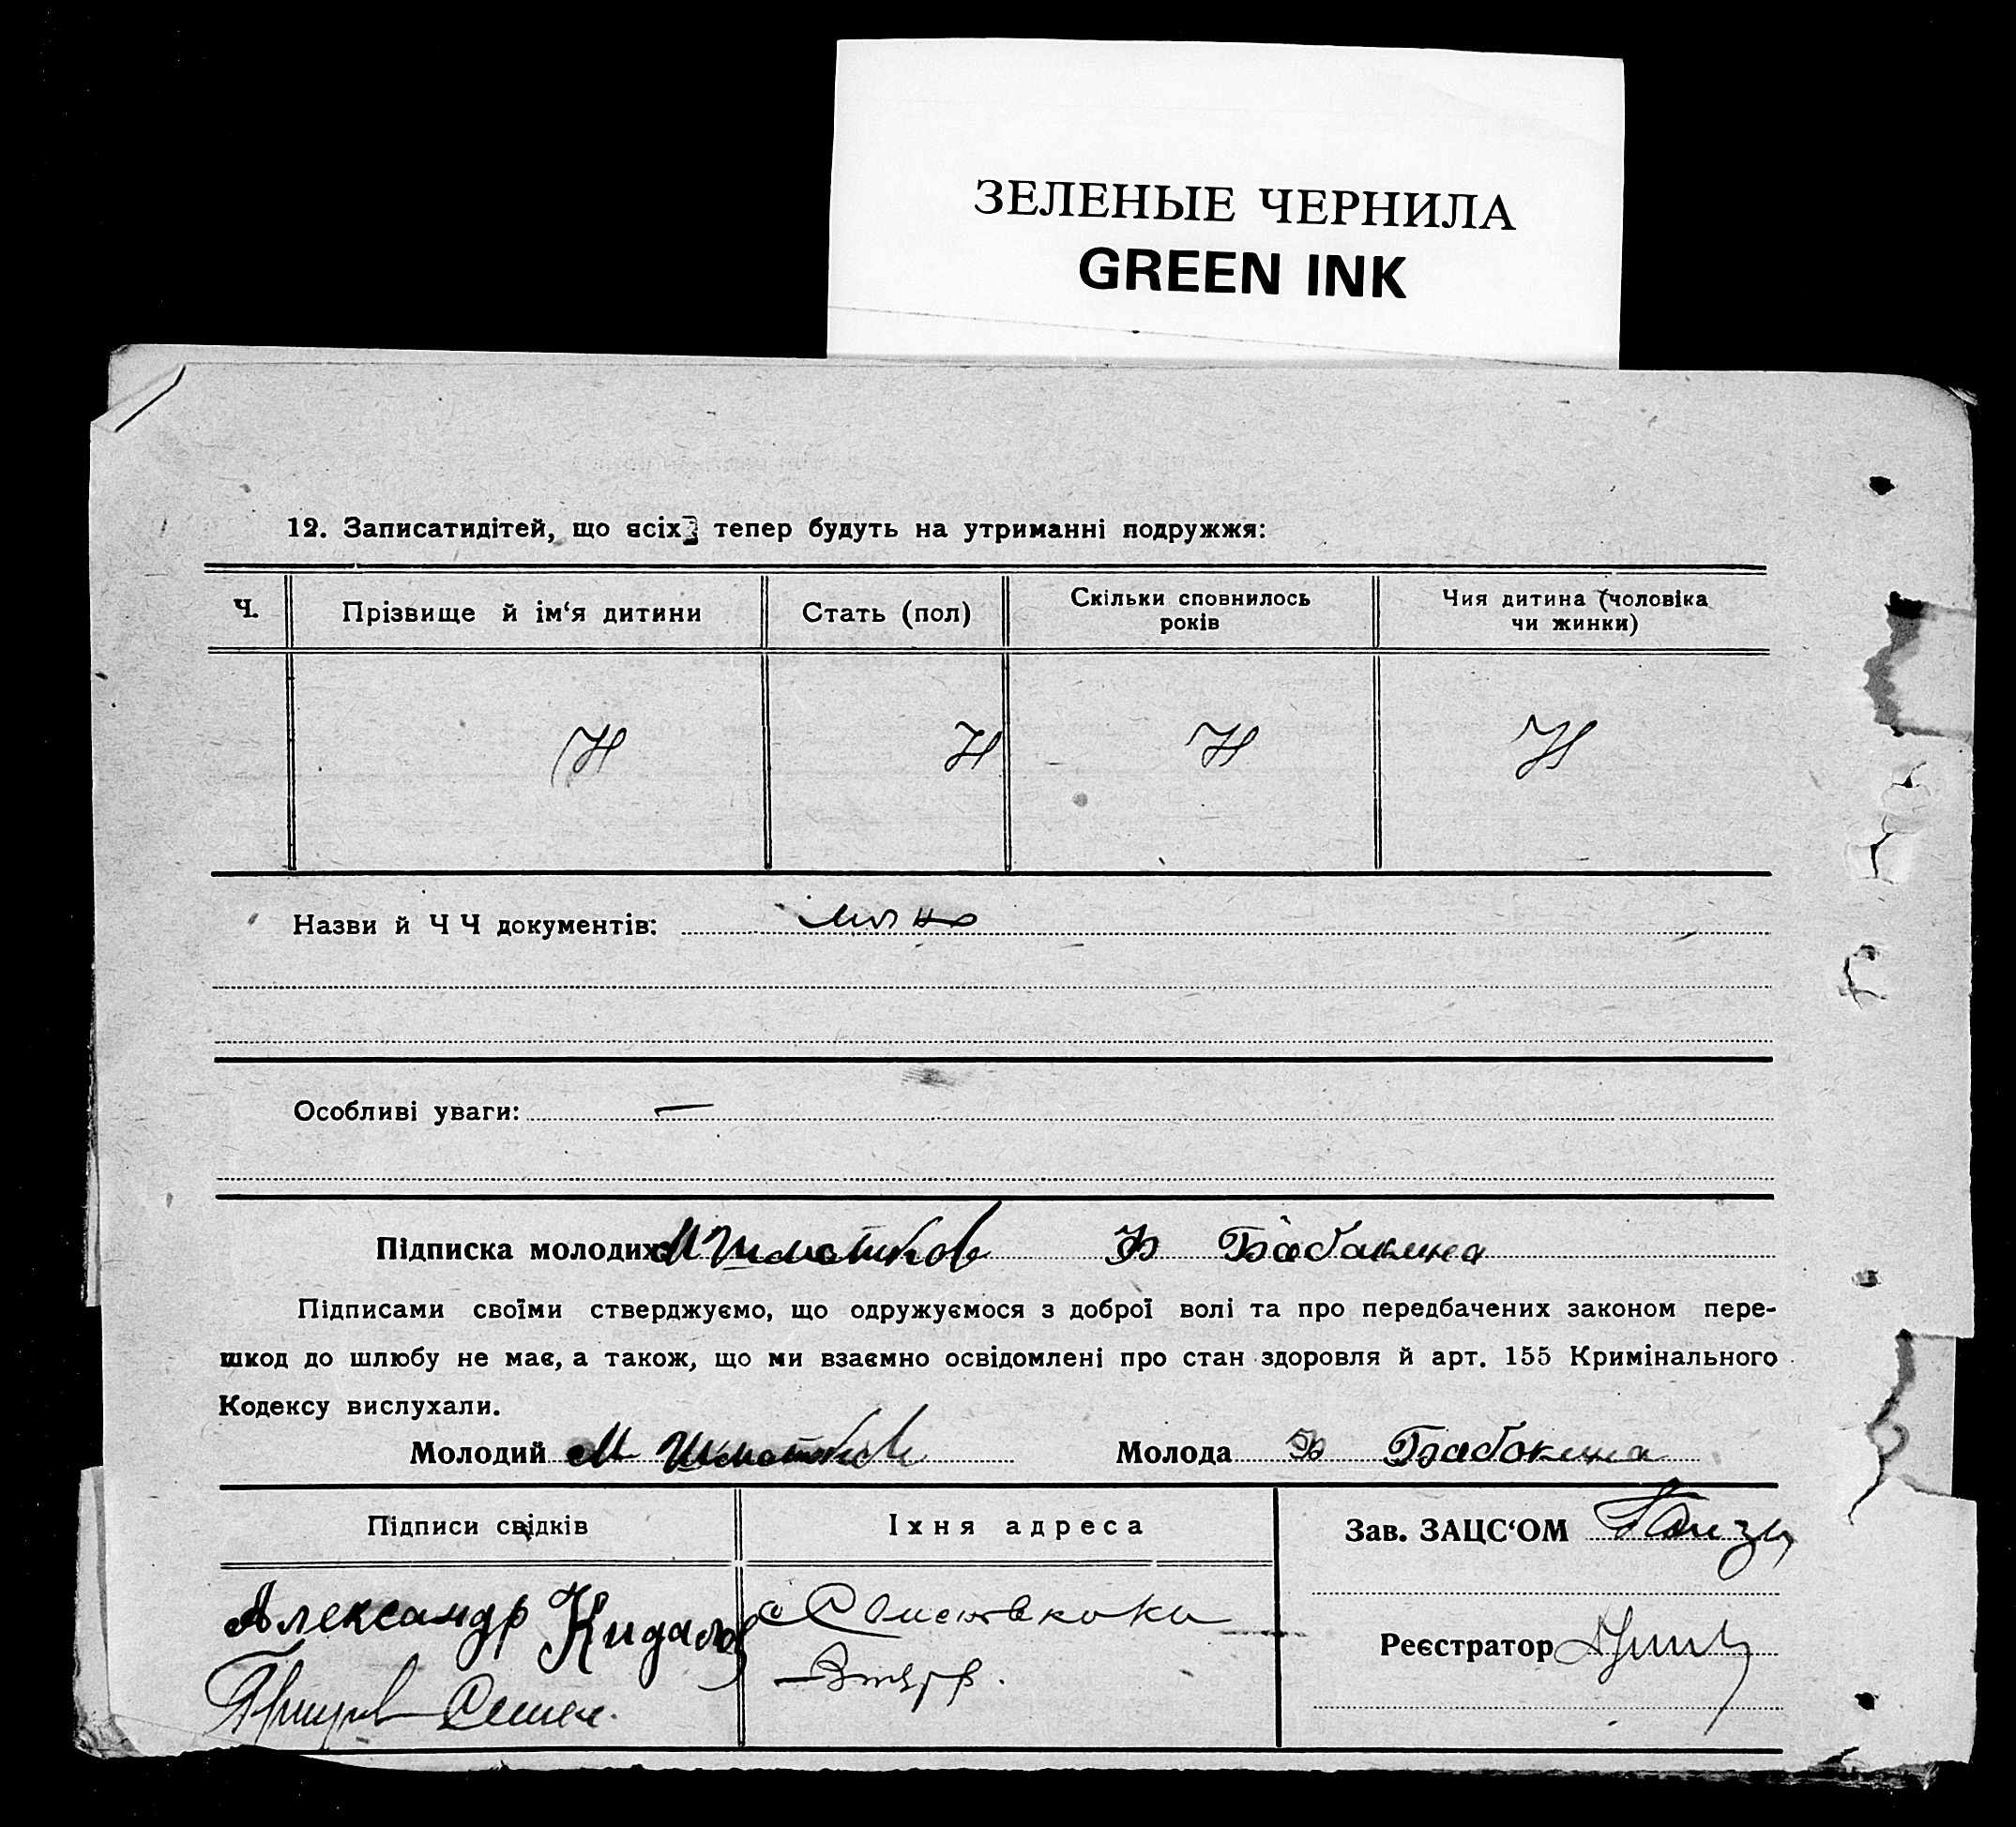 ЗЕЛЕНЫЕ ЧЕРНИЛА
GREEN INK
12. Записатидітей, що всіх тепер будуть на утриманні подружжя:
Ч. Прізвище й ім‘я дитини Стать (пол) Скільки сповнилось років Чия дитина (чоловіка чи жинки)
Н Н Н Н
Назви й Ч Ч документів:
Особливі уваги: —
Підписка молодих М Шматков Ф Бабакина
Підписами своїми стверджуємо, що одружуємося з доброї волі та про передбачених законом пере-
шкод до шлюбу не має, а також, що ми взаємно освідомлені про стан здоровля й арт. 155 Кримінального
Кодексу вислухали.
Молодий М Шматков Молода Ф Бабакина
Підписи свідків Їхня адреса Зав. ЗАЦС‘ОМ
Александр Кидалов
Реєстратор